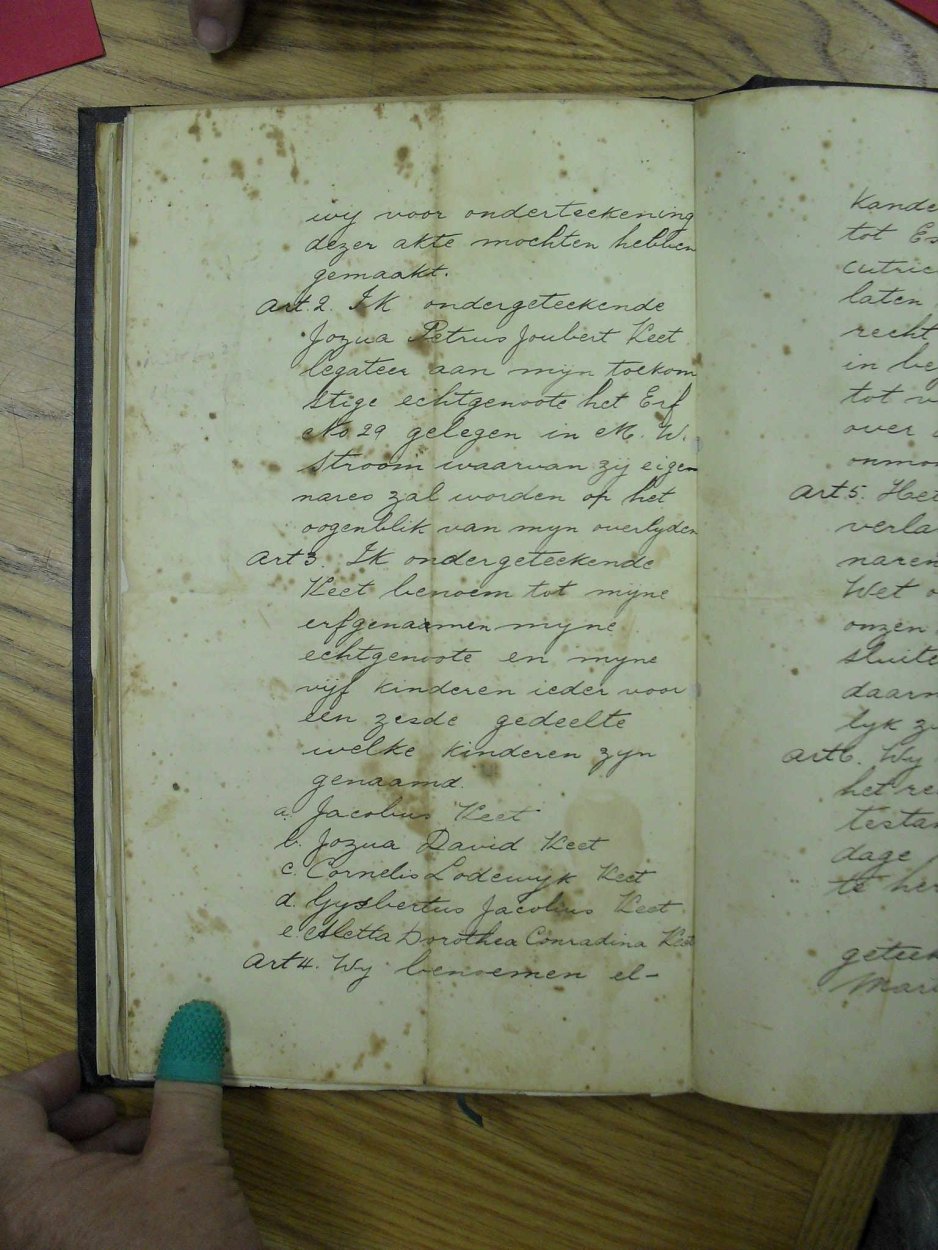 wy voor onderteekening
dezer akte mochten hebben
gemaakt.
Art. 2. Ik ondergeteekende
Jozua Petrus Joubert Keet
legateer aan mijn toekom
stige echtgenoote het Erf
No 29 gelegen in M. W.
Stroom waarvan zij eigen
nares zal worden op het
oogenblik van myn overlyden
Art 3. Ik ondergeteekende
Keet benoem tot myne
erfgenaamen myne
echtgenoote en myne
vijf kinderen ieder voor
een zesde gedeelte
welke kinderen zyn
genaamd.
a. Jacobus Keet
b. Jozua David Keet
c. Cornelis Lodewyk Keet
d. Gysbertus Jacobus Keet
e. Aletta Dorothea Conradina Keet
Art 4. Wy benoemen el-
kande
tot Es
cutric
laten
recht
in be
tot v
over
onmo
Art 5. Het
verla
naren
Wet o
onzen
sluite
daarn
lyk z
Art 6. Wy
het re
testa
dage
te her
geteek
Mar